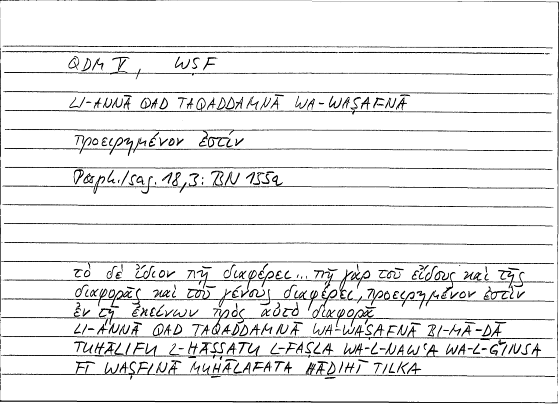 QDM V, WṢF
LI-ANNĀ QAD TAQADDAMNĀ WA-WAṢAFNĀ
προειρημένον ἐστίν
Porph. Isag. 18,3: BN 155a
τὸ δὲ ἴδιον πῇ διαφέρει... πῇ γὰρ τοῦ εἴδους καὶ τῆς
διαφορᾶς καὶ τοῦ γένους διαφέρει, προειρημένον ἐστίν
ἐν τῇ ἐκείνων πρὸς αὐτὸ διαφορᾷ
LI-ANNĀ QAD TAQADDAMNĀ WA-WAṢAFNĀ BI-MĀ-ḎĀ
TUḪĀLIFU L-ḪĀṢṢATU L-FAṢLA WA-L-NAWʿA WA-L-ǦINSA
FĪ WAṢFINĀ MUḪĀLAFATA HĀḎIHĪ TILKA